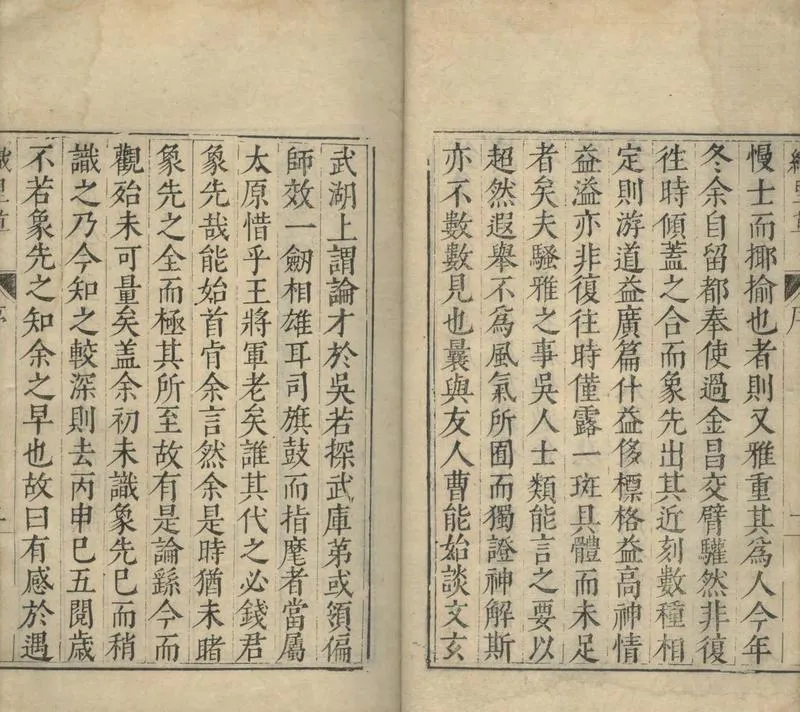 慢士而揶揄也者則又雅重其爲人今年
冬余自留都奉使過金昌交臂驩然非復
徃時傾蓋之合而象先出其近刻數種相
定則游道益廣篇什益侈標格益高神情
益溢亦非復往時僅露一斑具體而未足
者矣夫騷雅之事吳人士類能言之要以
超然遐舉不爲風氣所囿而獨證神解斯
亦不數數見也曩與友人曹能始談文玄
武湖上謂論才於吳若探武庫第或領偏
師效一劒相雄耳司旗鼓而指麾者當屬
太原惜乎王將軍老矣誰其代之必錢君
象先哉能始首肯余言然余是時猶未睹
象先之全而極其所至故有是論繇今而
觀殆未可量矣盖余初未識象先已而稍
識之乃今知之較深則去丙申已五閱歲
不若象先之知余之早也故曰有感於遇